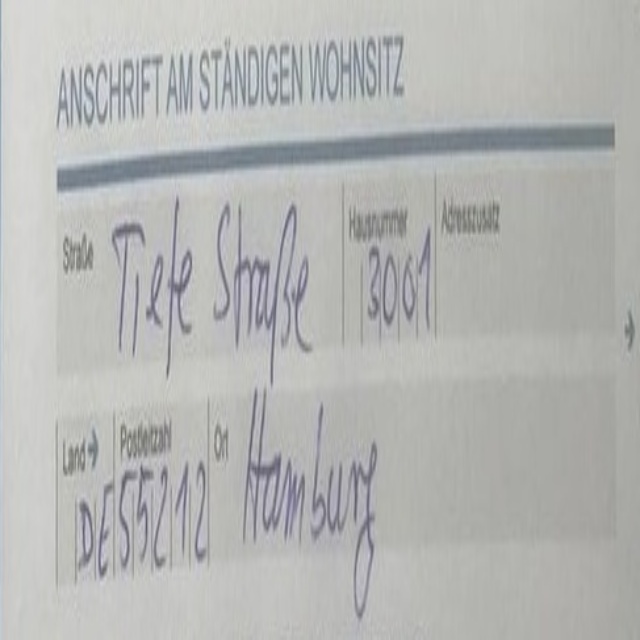 ANSCHRIFT AM STÄNDIGEN WOHNSITZ
Straße Tiefe Straße Hausnummer 3001 Adresszusatz
→
Land → DE Postleitzahl 55212 Ort Hamburg